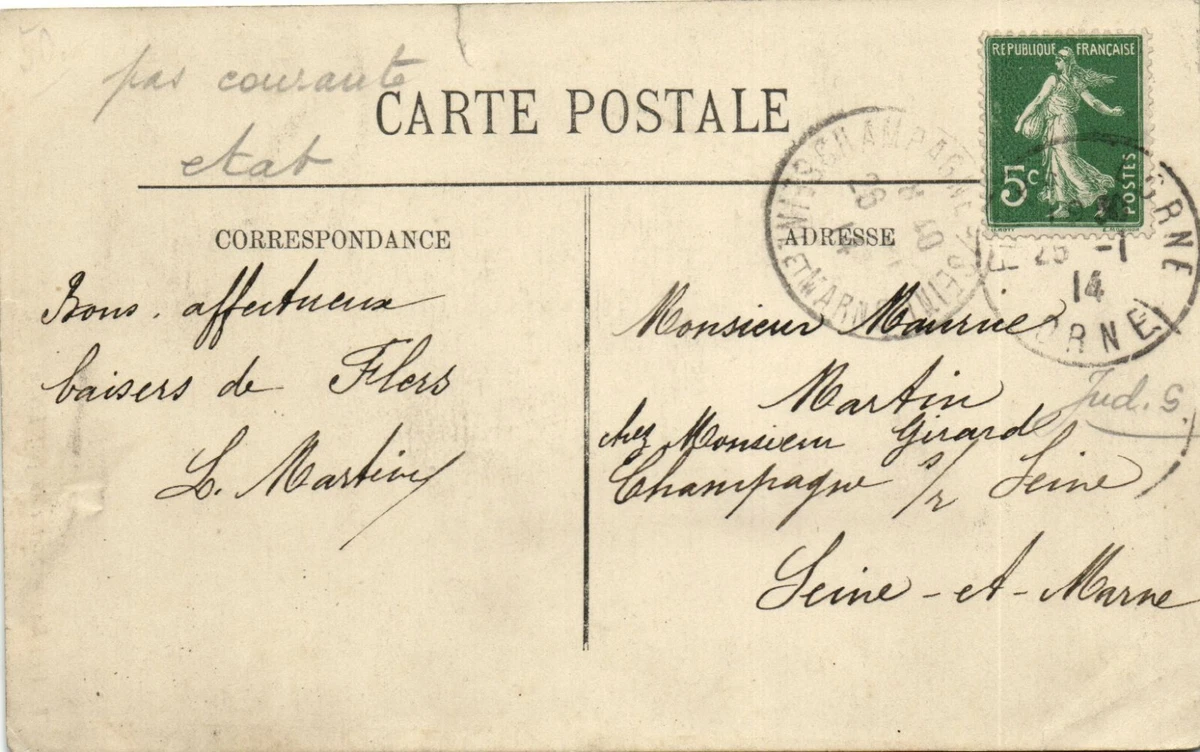 50
pas courante
etat
CARTE POSTALE
RÉPUBLIQUE FRANÇAISE
5c
POSTES
CHAMPAGNE S SEINE
SEINE ET MARNE
8 40
26 -1
14
ORNE
25 -1
14
ORNE
CORRESPONDANCE
Bons affectueux
baisers de Flers
L. Martin
ADRESSE
Monsieur Maurice
Martin
chez Monsieur Girard
Champagne s/r Seine
Seine-et-Marne
Jud. S.